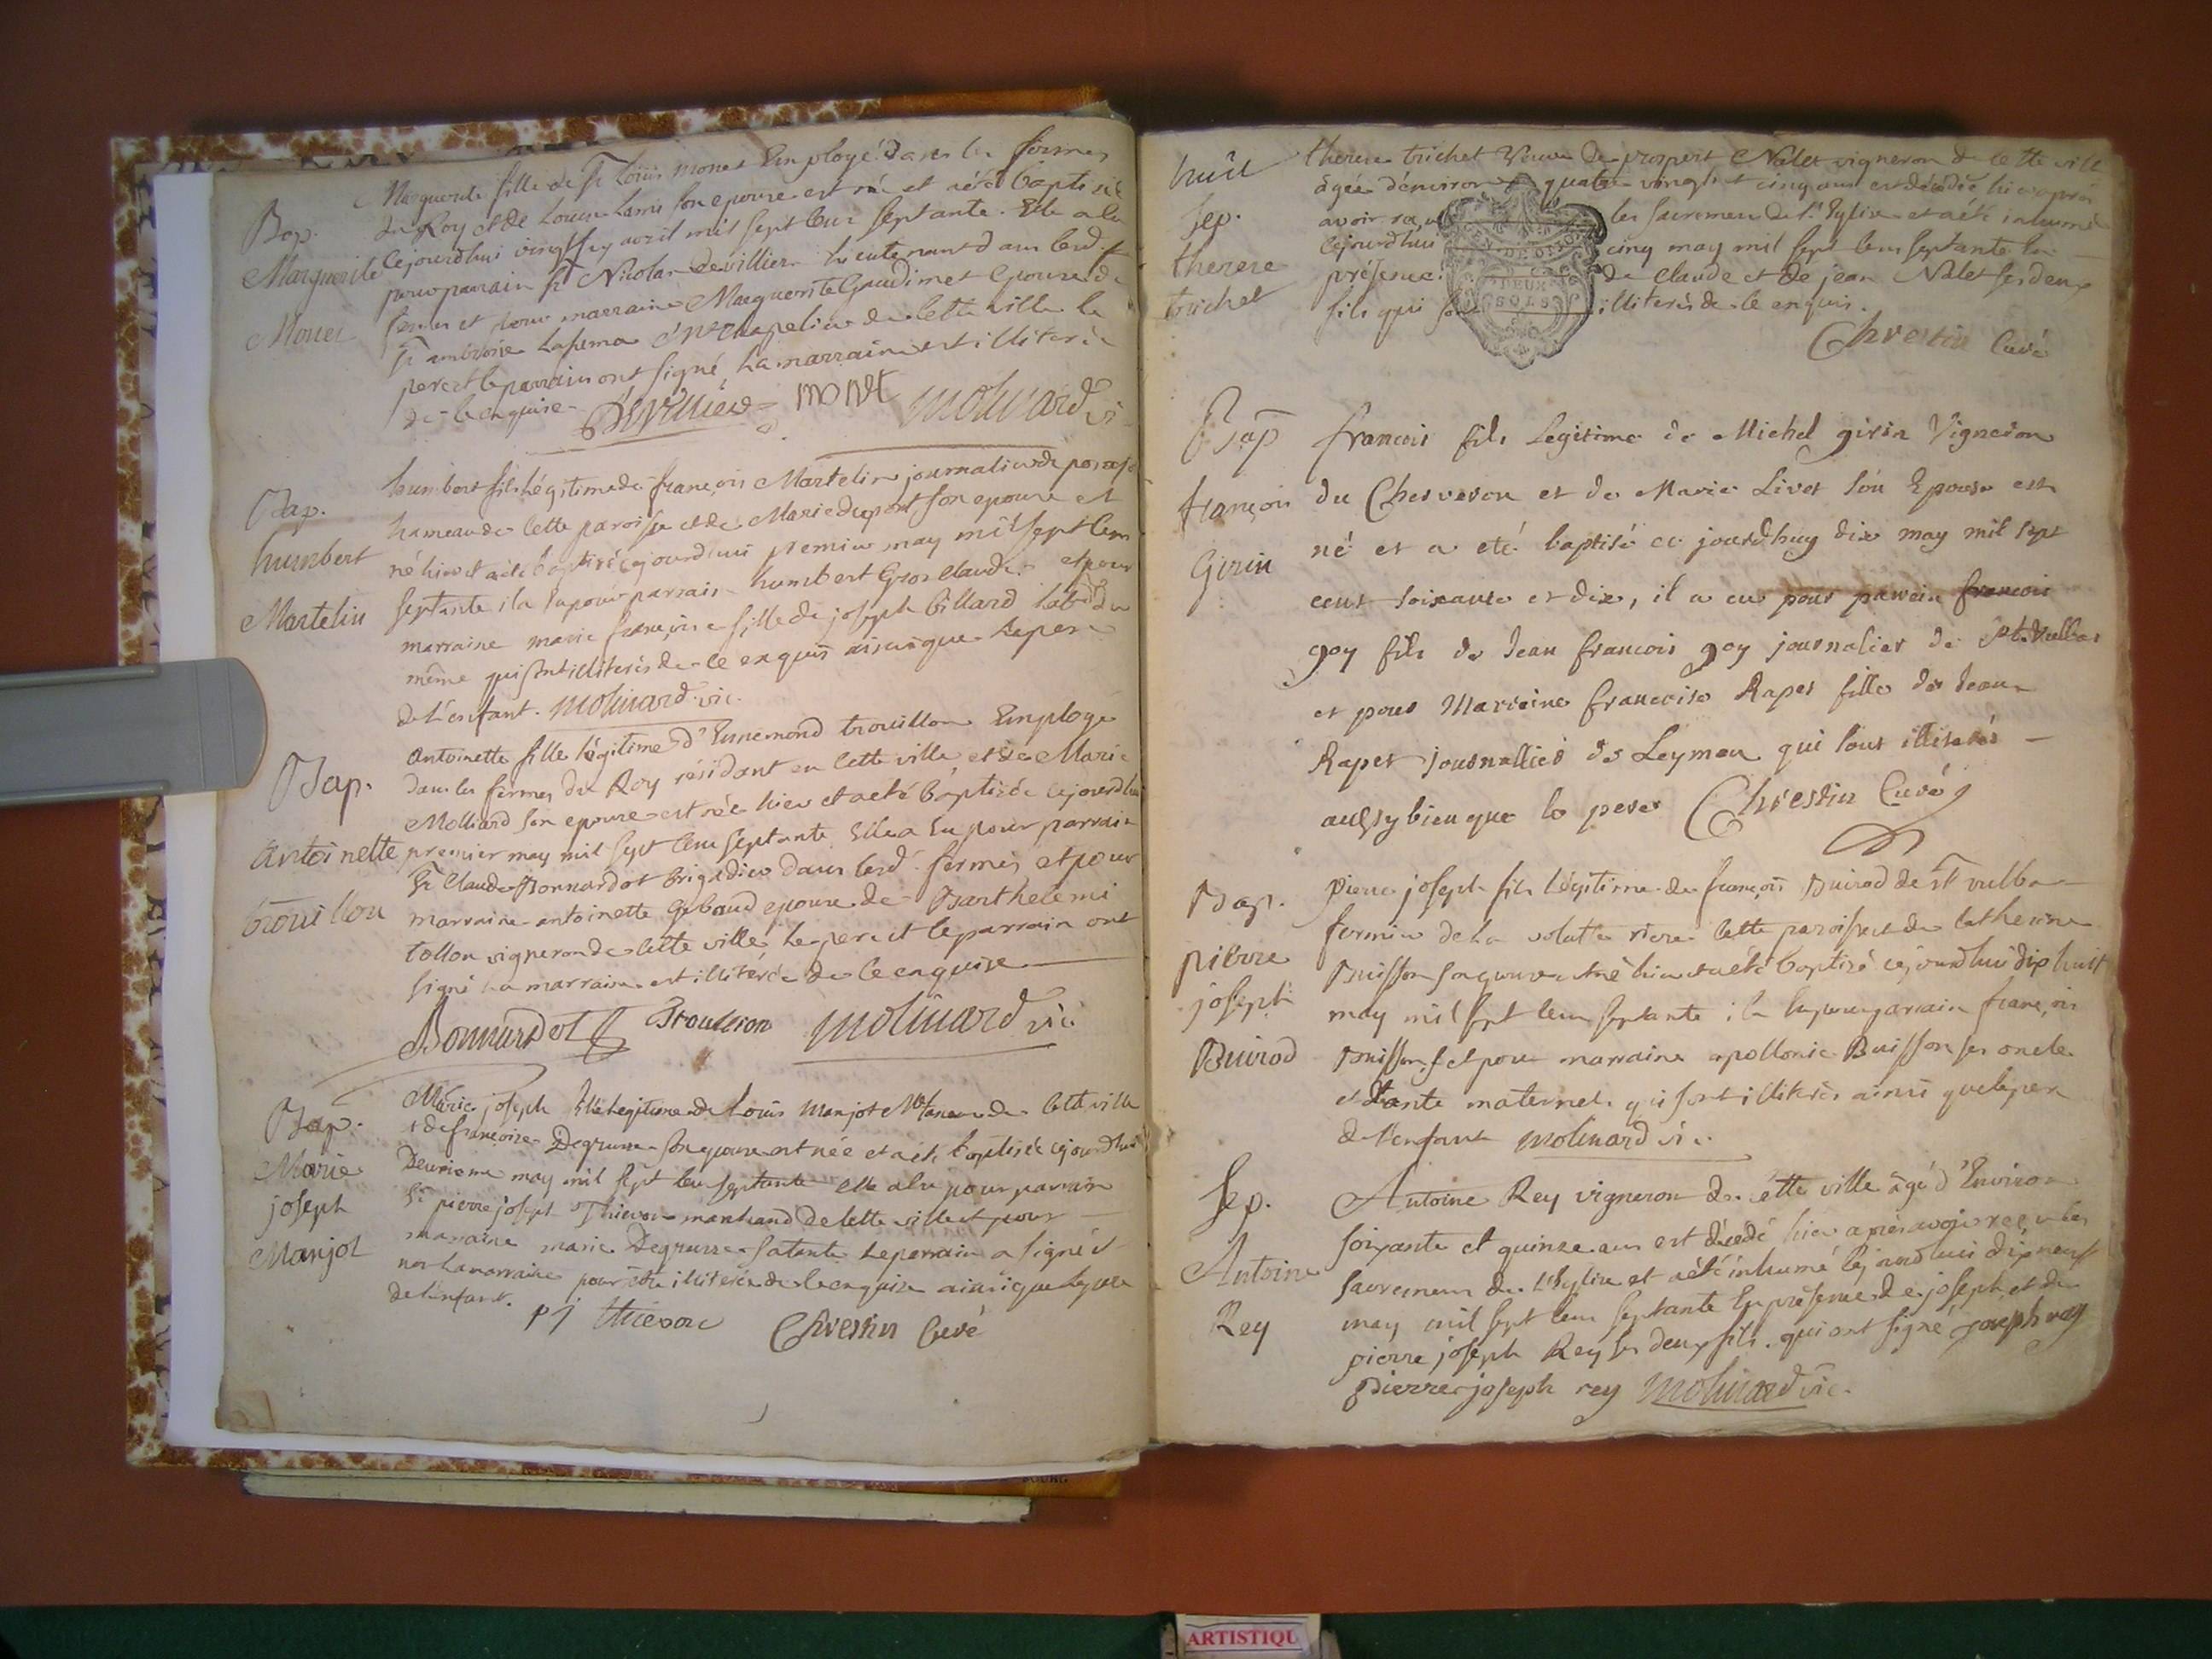 Bap.
Marguerite
Monet
Marguerite fille de Sr Louis monet Employé dans les fermes
du Roy et de Louise son epouse est née et a été baptisée
cejourdhui vingt avril mil sept cens septante. Elle a eu
pour parrain Sr Nicolas Devillier lieutenant dans lesd.
fermes et pour marraine Marguerite Gaudimet Epouse de
Sr ambroise chapelier de cette ville le
pere et le parrain ont signé la marraine est illiterée
de ce enquise.
Devilliers monet molinard vi.
Bap.
humbert
Martelin
humbert fils légitime de françois Martelin journalier de
hameau de cette paroisse et de Marie dupont son epouse est
né hier et a été baptisé cejourdhui premier may mil sept cens
septante il a eu pour parrain humbert Gros Claude et pour
marraine marie françoise fille de joseph billard habt du
même qui sont illiterés de ce enquis ainsi que le pere
de l'enfant. molinard vic.
Bap.
Antoinette
trouillon
Antoinette fille légitime d'Ennemond trouillon Employé
dans les fermes du Roy résidant en cette ville et de Marie
Molliard son epouse est née hier et a eté baptisée cejourdhui
premier may mil sept cens septante Elle a eu pour parrain
Sr Claude Bonnardot brigadier dans lesd. fermes, et pour
marraine antoinette Gebaud epouse de Barthelemi
tollon vigneron de cette ville le pere et le parrain ont
signé la marraine est illitérée de ce enquise
Bonnardot Trouillon molinard vic
Bap.
Marie
joseph
Manjot
Marie joseph fille legitime de Louis Manjot de cette ville
et de françoise Degrusse son epouse est née et a été baptisée cejourdhui
Deuxieme may mil sept cens septante elle a eu pour parrain
Sr pierre joseph Thievon marchand de cette ville et pour
marraine marie Degrusse sa tante le parrain a signé et
non la marraine pour être illiterée de ce enquise ainsi que le pere
de l'enfant.
pj thievon Chrestin Curé
huit
Sep.
therese
trichet
therese trichet Veuve de prospert Nalet vigneron de cette ville
âgée d'environ quatre vingt et cinq ans est décédée hier après
avoir reçu les sacremens de l'Eglise et a été inhumée
cejourdhui cinq may mil sept cens septante en
présence de Claude et de jean Nalet ses deux
fils qui sont illiterés de ce enquis.
GEN. DE DIJON
DEUX
SOLS
Chrestin Curé
Bap
françois
Girin
francois fils Legitime de Michel girin Vigneron
du Cherveron et de Marie Livet son Epouse est
né et a eté baptisé ce jourdhuy dix may mil sept
cent soixante et dix, il a eu pour parrein francois
goy fils de Jean francois goy journalier de St Vulbas
et pour Marreine francoise Rapet fille de Jean
Rapet journallier de Leyment qui sont illiterés
aussy bien que le pere Chrestin Curé
Bap.
pierre
joseph
Buirod
pierre joseph fils légitime de françois Buirod de St vulba
fermier de la volate riere cette paroisse et de Catherine
Buisson son epouse est né hier et a été baptisé cejourdhui dix huit
may mil sept cens septante il a eu pour parrain françois
Buisson et pour marraine apollonie Buisson ses oncle
et tante maternels qui sont illiterés ainsi que le pere
de l'enfant molinard vic.
Sep.
Antoine
Rey
Antoine Rey vigneron de cette ville âgé d'Environ
soixante et quinze ans est décédé hier après avoir reçu les
sacremens de l'Eglise et a été inhumé cejourdhui dix neuf
may mil sept cens septante En présence de joseph et de
pierre joseph Rey ses deux fils qui ont signé joseph rey
pierre joseph rey molinard vic.
ARTISTIQU